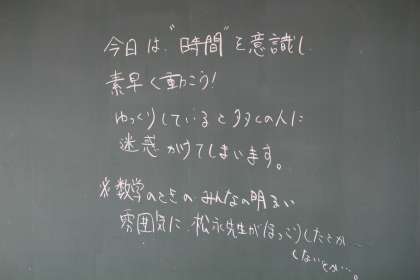 今日は、"時間"を意識し、
素早く動こう！
ゆっくりしていると多くの人に
迷惑がけてしまいます。
※数学のときのみんなの明るい
雰囲気に、松永先生がほっこりしたとか…
しないとか…。